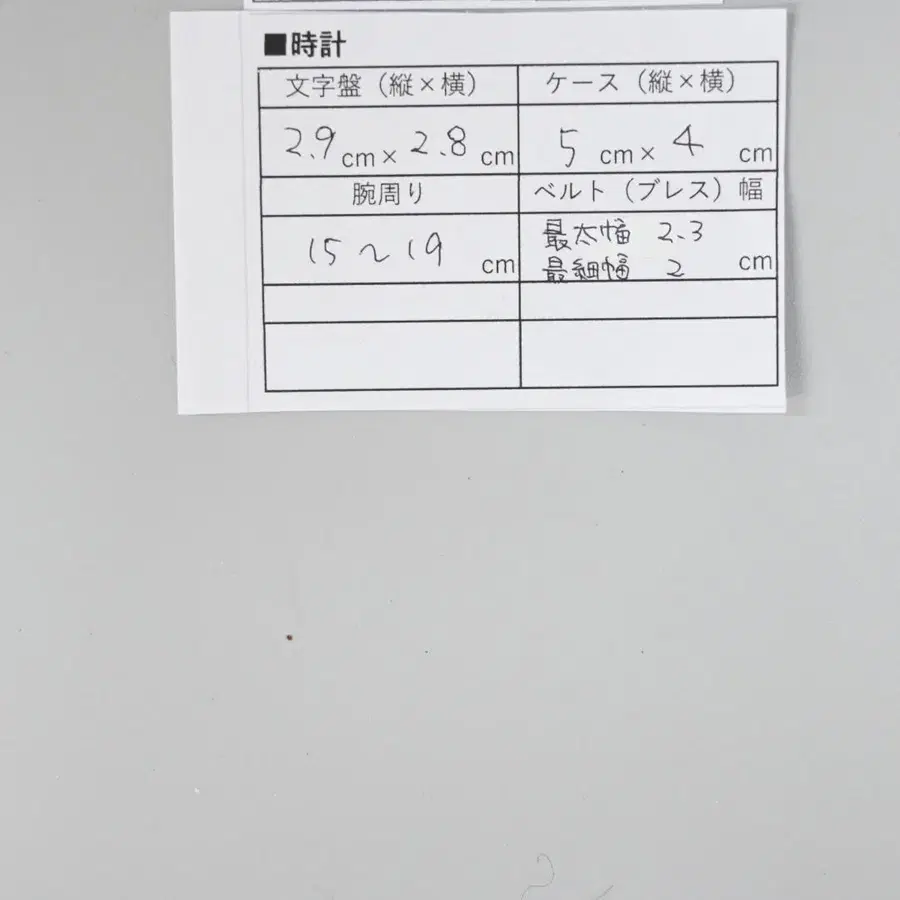 ■時計
文字盤（縦×横） ケース（縦×横）
2.9 cm× 2.8 cm 5 cm× 4 cm
腕周り ベルト（ブレス）幅
15～19 cm 最太幅 2.3
最細幅 2 cm